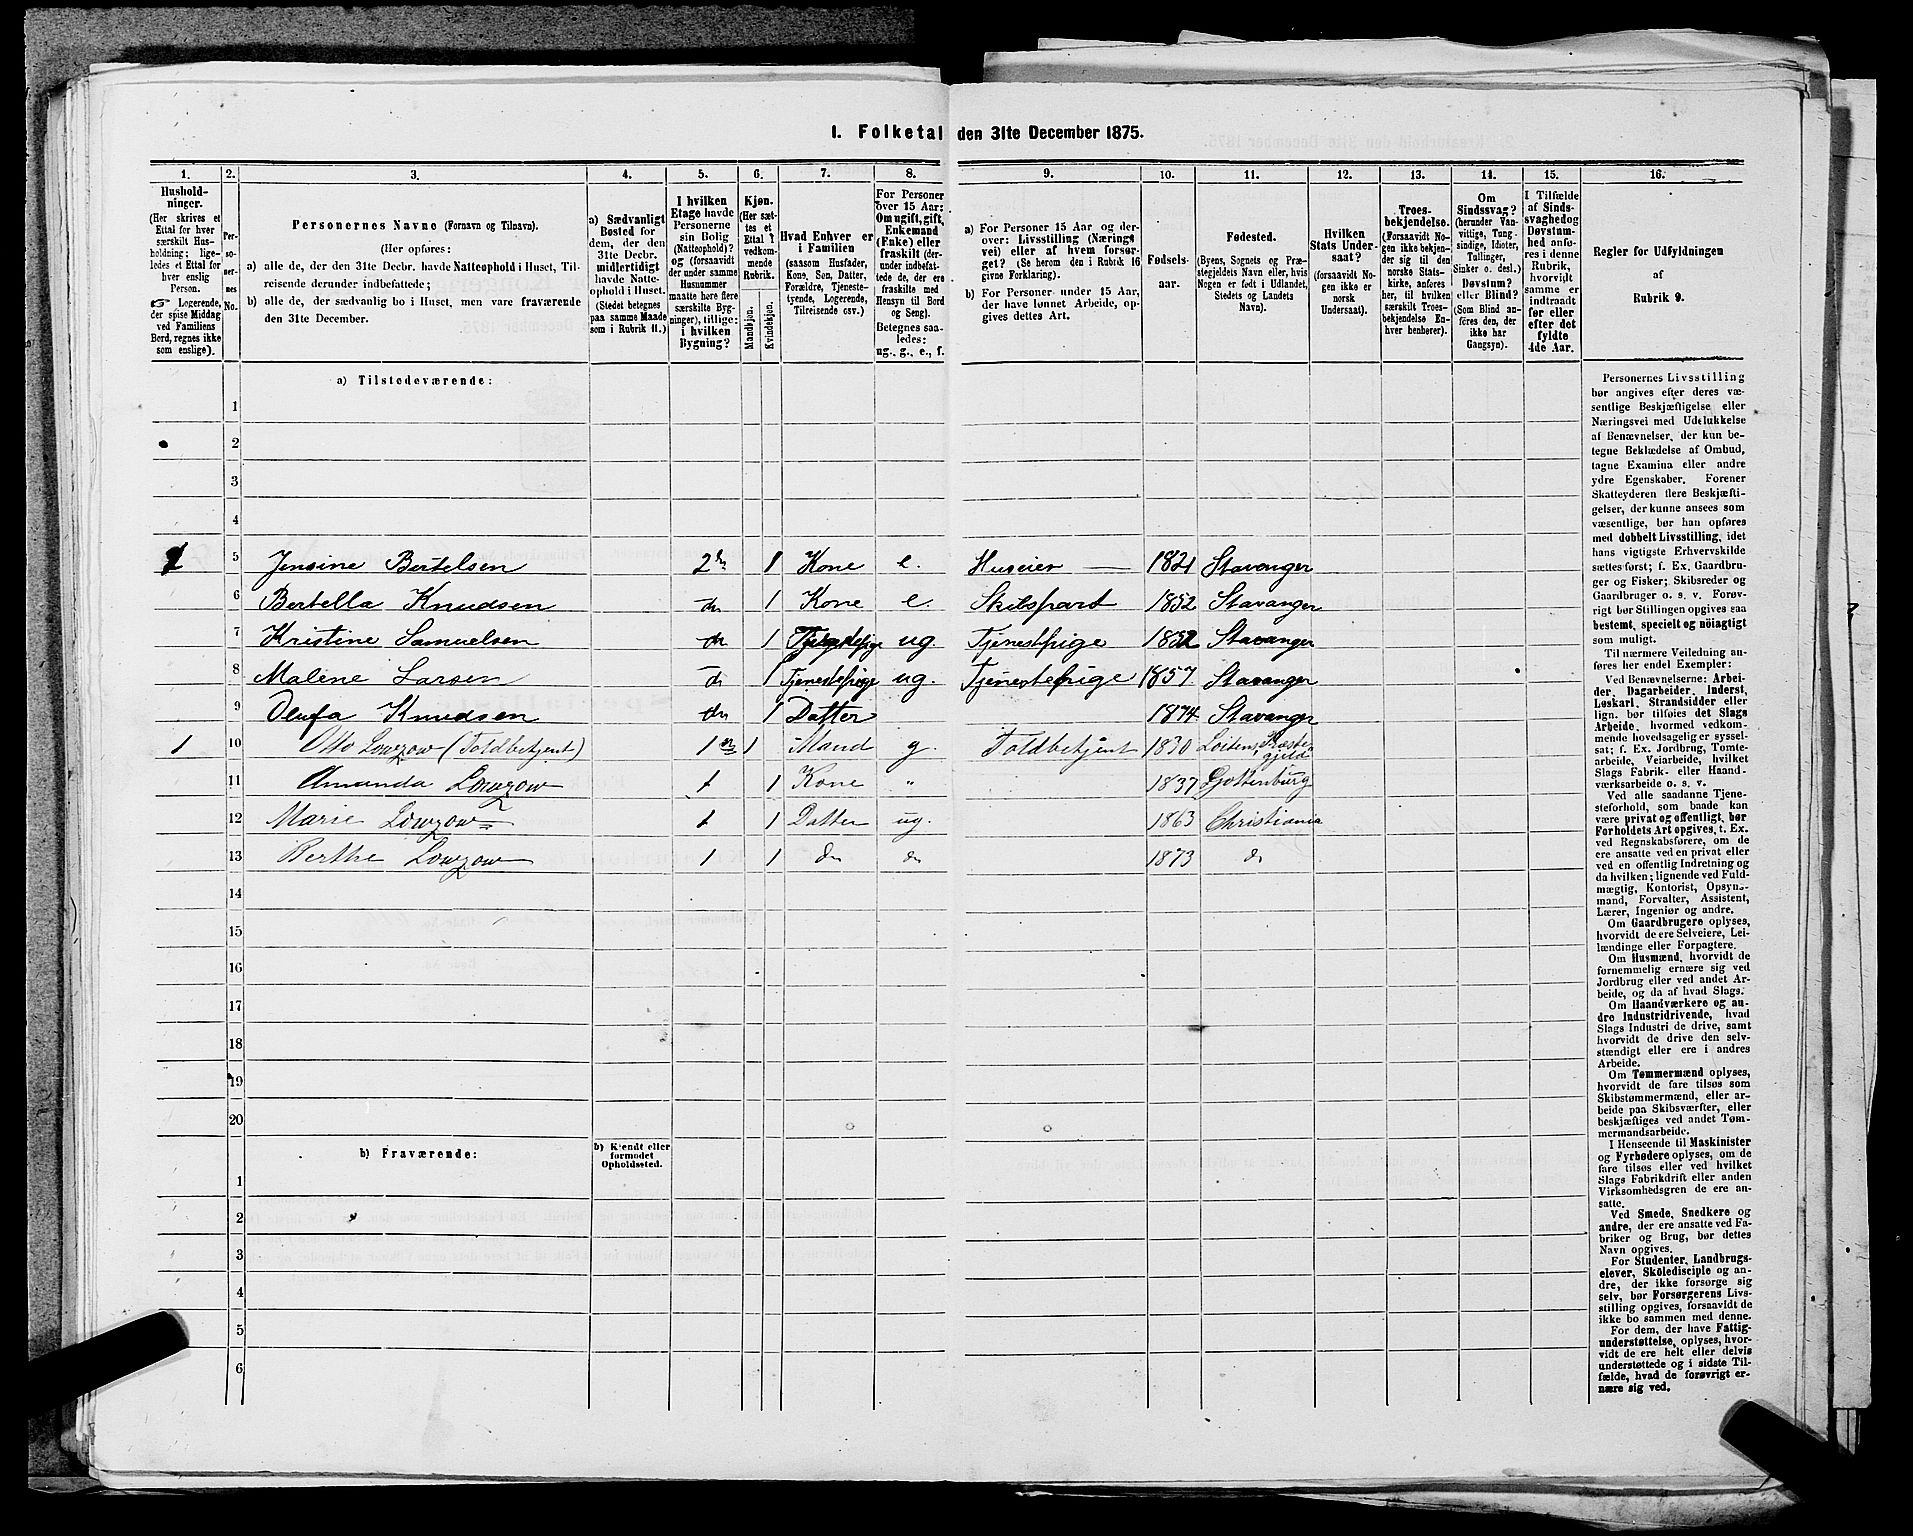 I. Folketal den 31te December 1875.
1. 2. 3. 4. 5. 6. 7. 8. 9. 10. 11. 12. 13. 14. 15. 16.
Hushold-
ninger.
(Her skrives et
Ettal for hver
særskilt Hus-
holdning; lige-
ledes et Ettal for
hver enslig
Person.
☞ Logerende,
der spise Middag
ved Familiens
Bord, regnes ikke
som enslige).
Per-
so-
ner-
nes
No.
Personernes Navne (Fornavn og Tilnavn).
(Her opføres:
a) alle de, der den 31te Decbr. havde Natteophold i Huset, Til-
reisende derunder indbefattede;
b) alle de, der sædvanlig bo i Huset, men vare fraværende
den 31te December.
a) Sædvanligt
Bosted for
dem, der den
31te Decbr.
midlertidigt
havde Natte-
ophold i Huset.
(Stedet betegnes
paa samme Maade
som i Rubrik 11.)
I hvilken
Etage havde
Personerne
sin Bolig
(Natteophold)?
og (forsaavidt
der under samme
Husnummer
maatte høre flere
særskilte Byg-
ninger), tillige:
i hvilken
Bygning?
Kjøn.
(Her sæt-
tes et
Ettal i
vedkom-
mende
Rubrik.
Mandkjøn.
Kvindekjøn.
Hvad Enhver er
i Familien
(saasom Husfader,
Kone, Søn, Datter,
Forældre, Tjeneste-
tyende, Logerende,
Tilreisende osv.)
For Personer
over 15 Aar:
Om ugift, gift,
Enkemand
(Enke) eller
fraskilt (der-
under indbefat-
tede de, der ere
fraskilte med
Hensyn til Bord
og Seng).
Betegnes saa-
ledes:
ug., g., e., f.
a) For Personer 15 Aar og der-
over: Livsstilling (Nærings-
vei) eller af hvem forsør-
get? (Se herom den i Rubrik 16
givne Forklaring).
b) For Personer under 15 Aar,
der have lønnet Arbeide, op-
gives dettes Art.
Fødsels-
aar.
Fødested.
(Byens, Sognets og Præ-
stegjeldets Navn eller, hvis
Nogen er født i Udlandet,
Stedets og Landets
Navn).
Hvilken
Stats Under-
saat?
(forsaavidt No-
gen ikke er
norsk
Undersaat).
Troes-
bekjendelse.
(Forsaavidt No-
gen ikke bekjen-
der sig til den
norske Stats-
kirke, anføres
her, til hvilken
særskilt Troes-
bekjendelse En-
hver henhører).
Om
Sindssvag?
(herunder Van-
vittige, Tung-
sindige, Idioter,
Tullinger,
Sinker o. desl.)
Døvstum?
eller Blind?
(Som Blind an-
føres den, der
ikke har
Gangsyn).
I Tilfælde
af Sinds-
svaghed og
Døvstum-
hed anfø-
res i denne
Rubrik,
hvorvidt
samme er
indtraadt
før eller
efter det
fyldte
4de Aar.
Regler for Udfyldningen
af
Rubrik 9.
a) Tilstedeværende:
1
2
3
4
5 Jensine Bertelsen 2den 1 Kone e. Huseier 1821 Stavanger
6 Bertella Knudsen do 1 Kone e. Skibspart 1852 Stavanger
7 Kristine Samuelsen do 1 ug. Tjenestepige Stavanger
8 Malene Larsen do 1 Tjenestepige ug. Tjenestepige 1857 Stavanger
9 Olufa Knudsen do 1 Datter 1874 Stavanger
1 10 Otto Lowzow (Toldbetjent) 1ste 1 Mand g. Toldbetjent 1830 Løitens Præste-
gjeld
11 Amanda Lowzow 1 1 Kone " 1837 Gottenburg
12 Marie Lowzow 1 1 Datter ug. 1863 Christiania
13 Berthe Lowzow 1 1 do do 1873 do
14
15
16
17
18
19
20
b) Fraværende:
b) Kjendt eller
formodet
Opholdssted.
1
2
3
4
5
6
Personernes Livsstilling
bør angives efter deres væ-
sentlige Beskjæftigelse eller
Næringsvei med Udelukkelse
af Benævnelser, der kun be-
tegne Beklædelse af Ombud,
tagne Examina eller andre
ydre Egenskaber. Forener
Skatteyderen flere Beskjæfti-
gelser, der kunne ansees som
væsentlige, bør han opføres
med dobbelt Livsstilling, idet
hans vigtigste Erhvervskilde
sættes først; f. Ex. Gaardbru-
ger og Fisker; Skibsreder og
Gaardbruger o. s. v. Forøv-
rigt bør Stillingen opgives saa
bestemt, specielt og nöiagtigt
som muligt.
Til nærmere Veiledning an-
føres her endel Exempler:
Ved Benævnelserne: Arbei-
der, Dagarbeider, Inderst,
Løskarl, Strandsidder eller
lign. bør tilføies det Slags
Arbeide, hvormed vedkom-
mende hovedsagelig er syssel-
sat; f. Ex. Jordbrug, Tomte-
arbeide, Veiarbeide, hvilket
Slags Fabrik- eller Haand-
værksarbeide o. s. v.
Ved alle saadanne Tjene-
steforhold, som baade kan
være privat og offentligt, bør
Forholdets Art opgives, t. Ex.
ved Regnskabsførere, om de
ere ansatte ved en privat eller
ved en offentlig Indretning og
da hvilken; lignende ved Fuld-
mægtig, Kontorist, Opsyns-
mand, Forvalter, Assistent,
Lærer, Ingeniør og andre.
Om Gaardbrugere oplyses,
hvorvidt de ere Selveiere, Lei-
lændinge eller Forpagtere.
Om Husmænd, hvorvidt de
fornemmelig ernære sig ved
Jordbrug eller ved andet Ar-
beide, og da af hvad Slags.
Om Haandværkere og an-
dre Industridrivende, hvad
Slags Industri de drive, samt
hvorvidt de drive den selv-
stændigt eller ere i andres
Arbeide.
Om Tømmermænd oplyses,
hvorvidt de fare tilsøs som
Skibstømmermænd, eller ar-
beide paa Skibsværfter, eller
beskjæftiges ved andet Tøm-
mermandsarbeide.
I Henseende til Maskinister
og Fyrbødere oplyses, om de
fare tilsøs eller ved hvilket
Slags Fabrikdrift eller anden
Virksomhedsgren de ere an-
satte.
Ved Smede, Snedkere og
andre, der ere ansatte ved Fa-
briker og Brug, bør dettes
Navn opgives.
For Studenter, Landbrugs-
elever, Skoledisciple og an-
dre, der ikke forsørge sig
selv, bør Forsørgerens Livs-
stilling opgives, forsaavidt de
ikke bo sammen med denne.
For dem, der have Fattig-
understøttelse, oplyses, hvor-
vidt de ere helt eller delvis
understøttede og i sidste Til-
fælde, hvad de forøvrigt er-
nære sig ved.